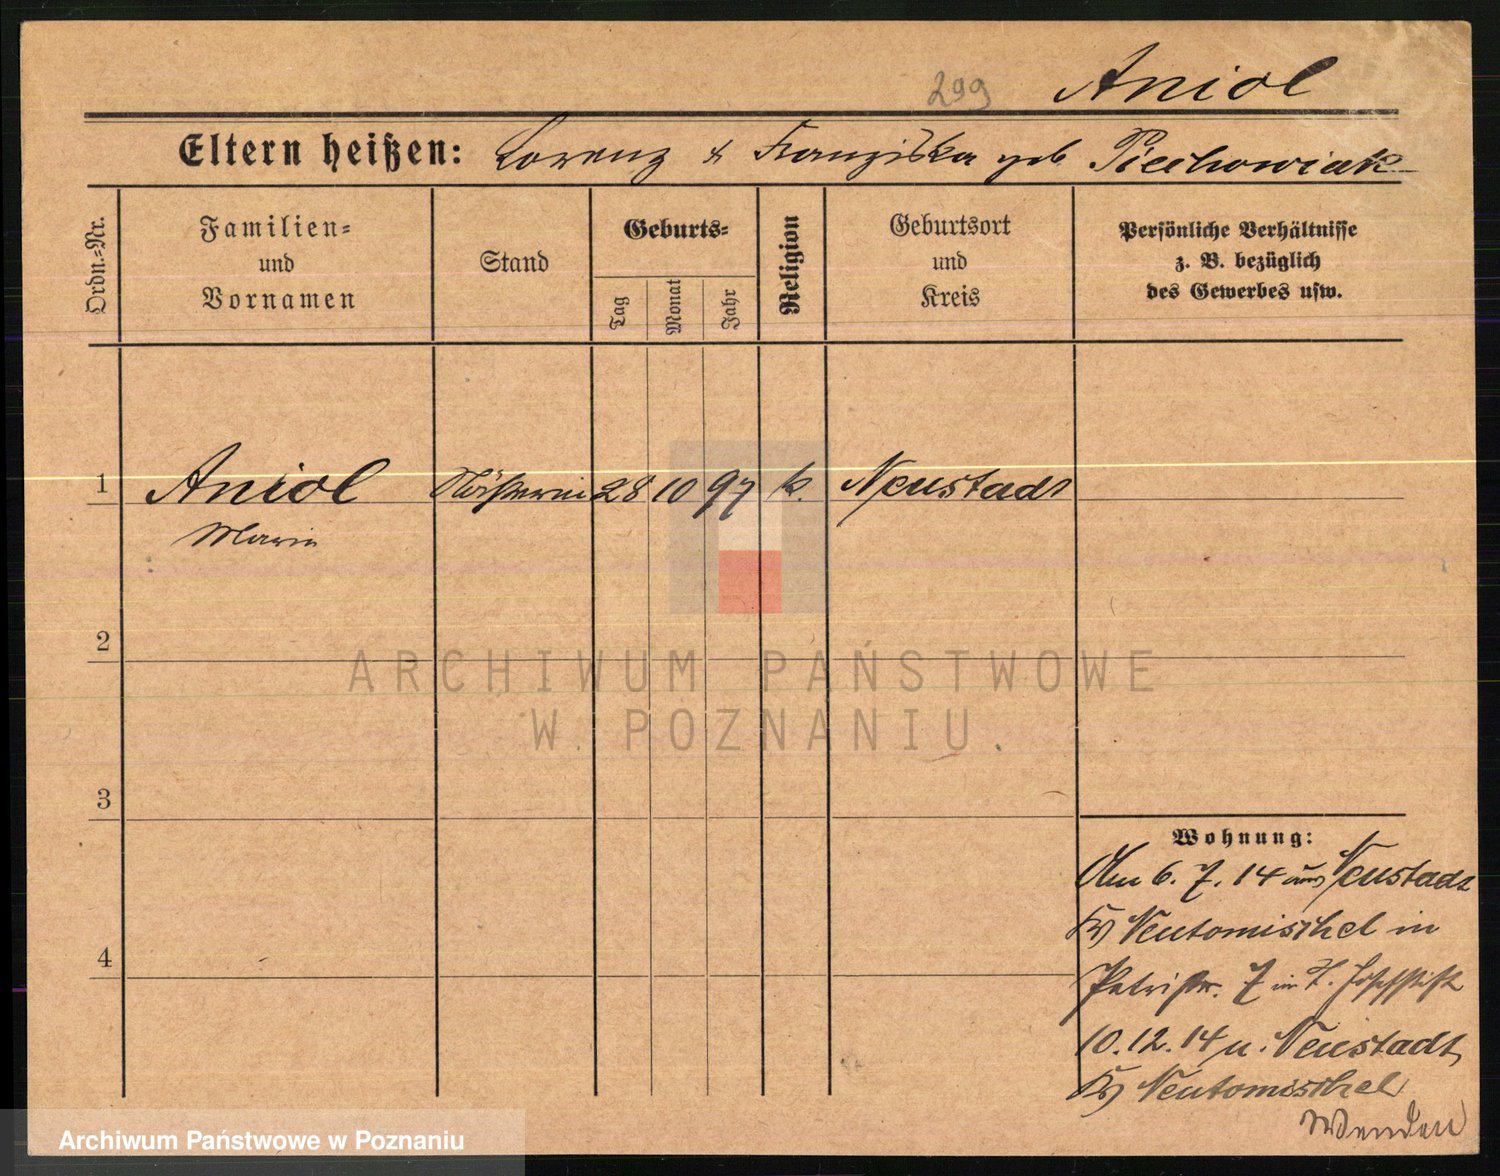 299 Aniol
Eltern heißen: Lorenz & Franziska geb Piechowiak
Ordn.-Nr.
Familien-
und
Vornamen
Stand
Geburts-
Tag
Monat
Jahr
Religion
Geburtsort
und
Kreis
Persönliche Verhältnisse
z. B. bezüglich
des Gewerbes usw.
1 Aniol 28 10 97 k. Neustadt
Marie
2
3
4
Wohnung:
Am 6. 7. 14 aus Neustadt
Kr Neutomischel in
Petristr. 7 im St. Josefstift
10.12.14 n. Neustadt,
Kr Neutomischel
Wenden
ARCHIWUM PAŃSTWOWE
W. POZNANIU.
Archiwum Państwowe w Poznaniu